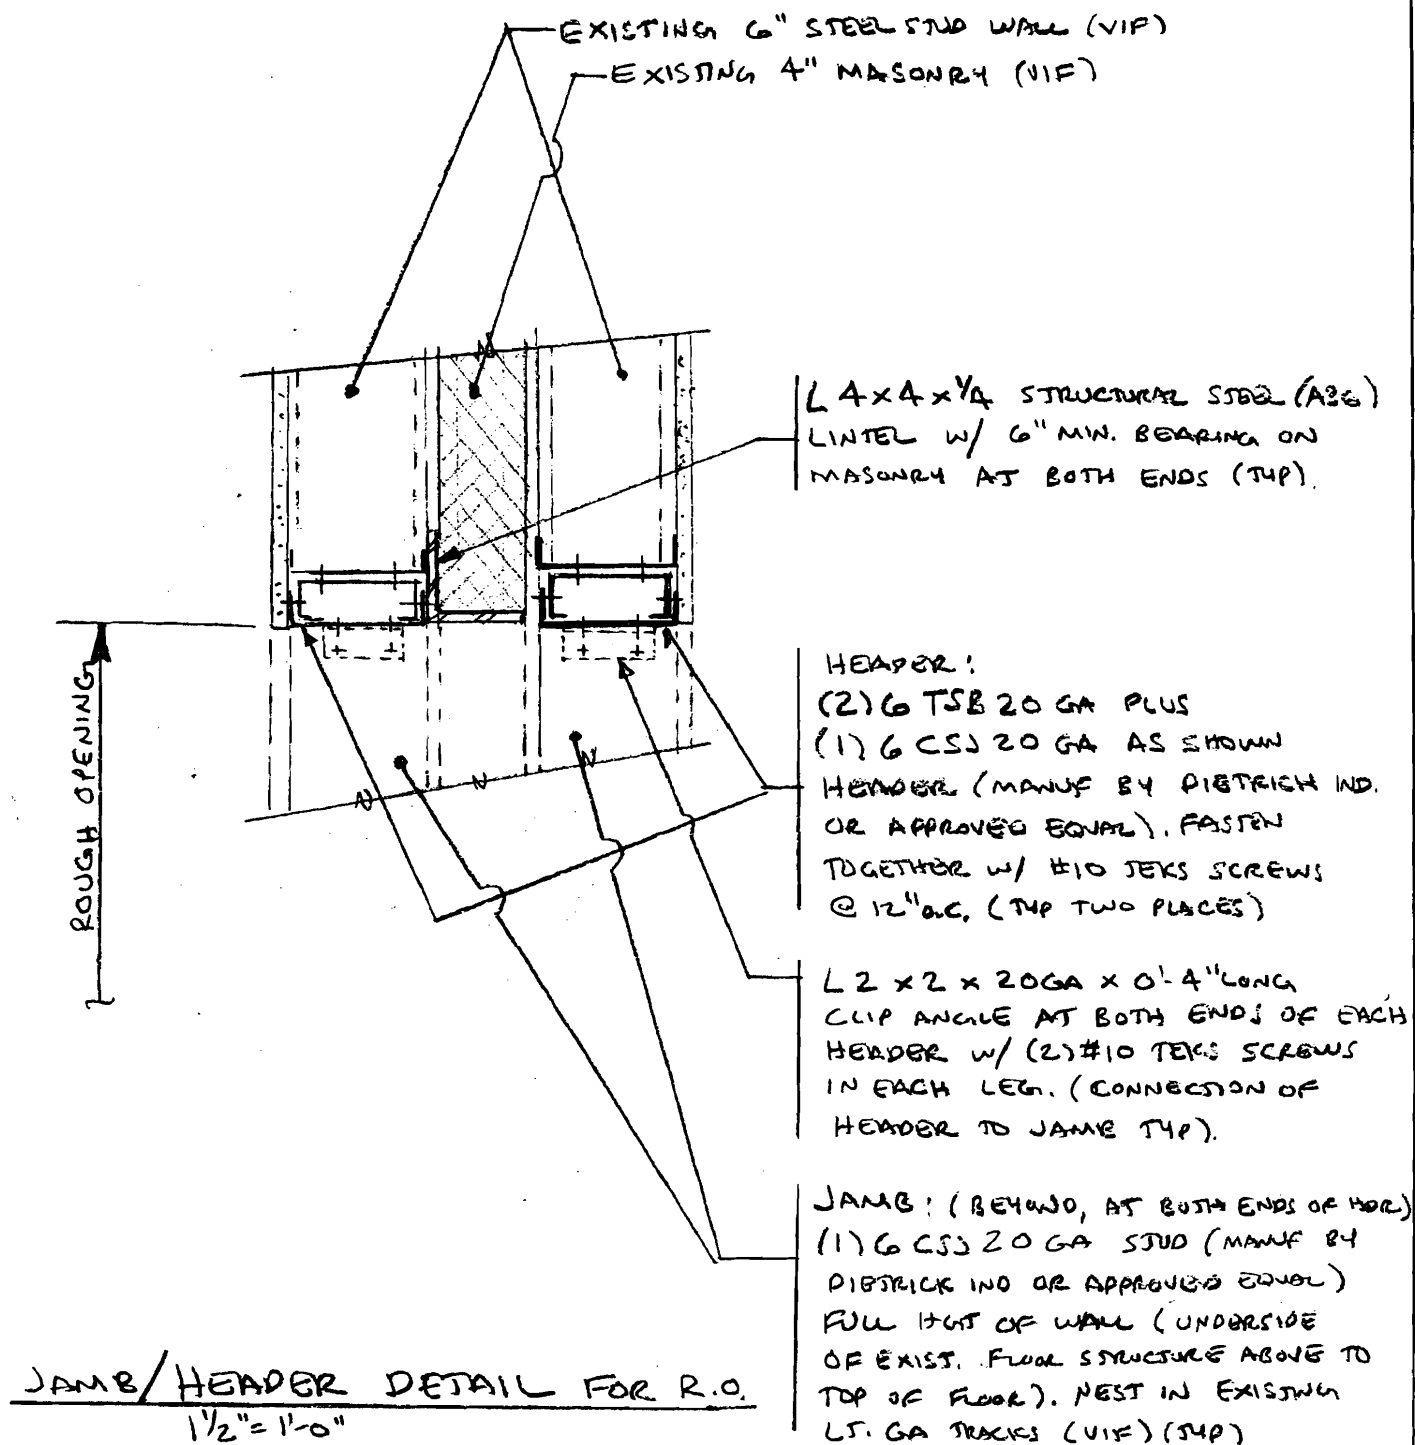 EXISTING 6" STEEL STUD WALL (VIF)
EXISTING 4" MASONRY (VIF)
L 4 x 4 x 1/4 STRUCTURAL STEEL (A36)
LINTEL W/ 6" MIN. BEARING ON
MASONRY AT BOTH ENDS (TYP).
ROUGH OPENING
HEADER:
(2) 6 TSB 20 GA PLUS
(1) 6 CSJ 20 GA AS SHOWN
HEADER (MANUF BY DIETRICH IND.
OR APPROVED EQUAL). FASTEN
TOGETHER W/ #10 TEKS SCREWS
@ 12" O.C. (TYP TWO PLACES)
L 2 x 2 x 20GA x 0'-4" LONG
CLIP ANGLE AT BOTH ENDS OF EACH
HEADER W/ (2) #10 TEKS SCREWS
IN EACH LEG. (CONNECTION OF
HEADER TO JAMB TYP).
JAMB: (BEYOND, AT BOTH ENDS OF HDR)
(1) 6 CSJ 20 GA STUD (MANUF BY
DIETRICK IND OR APPROVED EQUAL)
FULL HGT OF WALL (UNDERSIDE
OF EXIST. FLOOR STRUCTURE ABOVE TO
TOP OF FLOOR). NEST IN EXISTING
LT. GA TRACKS (VIF) (TYP)
JAMB/HEADER DETAIL FOR R.O.
1 1/2" = 1'-0"